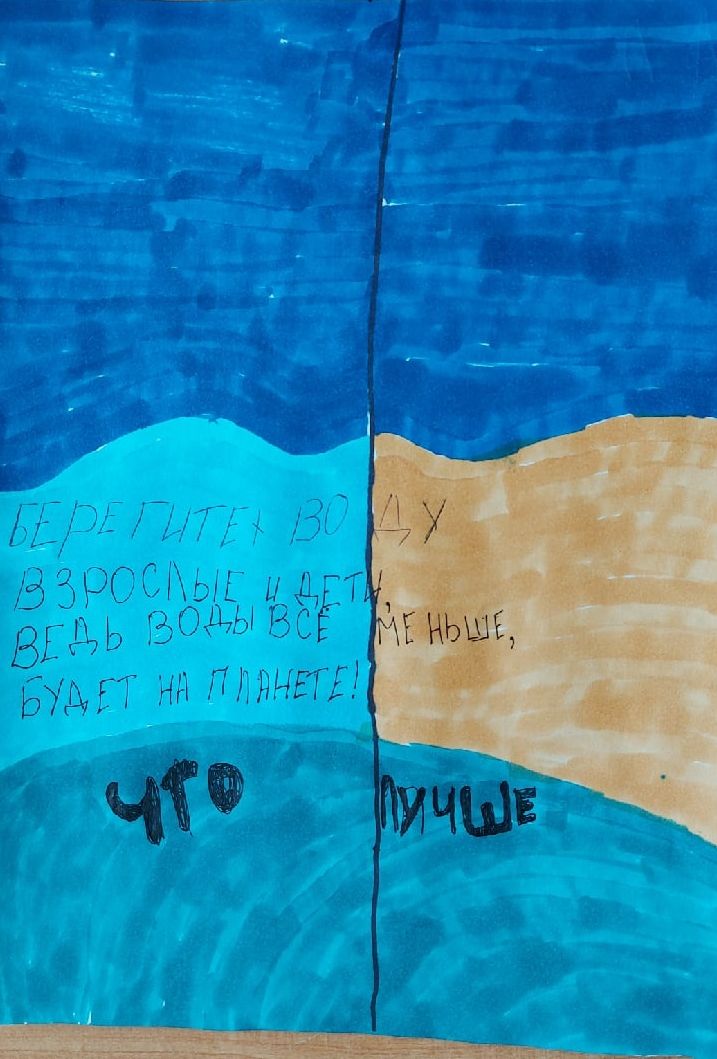 БЕРЕГИТЕ ВОДУ
ВЗРОСЛЫЕ И ДЕТИ,
ВЕДЬ ВОДЫ ВСЁ МЕНЬШЕ,
БУДЕТ НА ПЛАНЕТЕ!
ЧТО ЛУЧШЕ